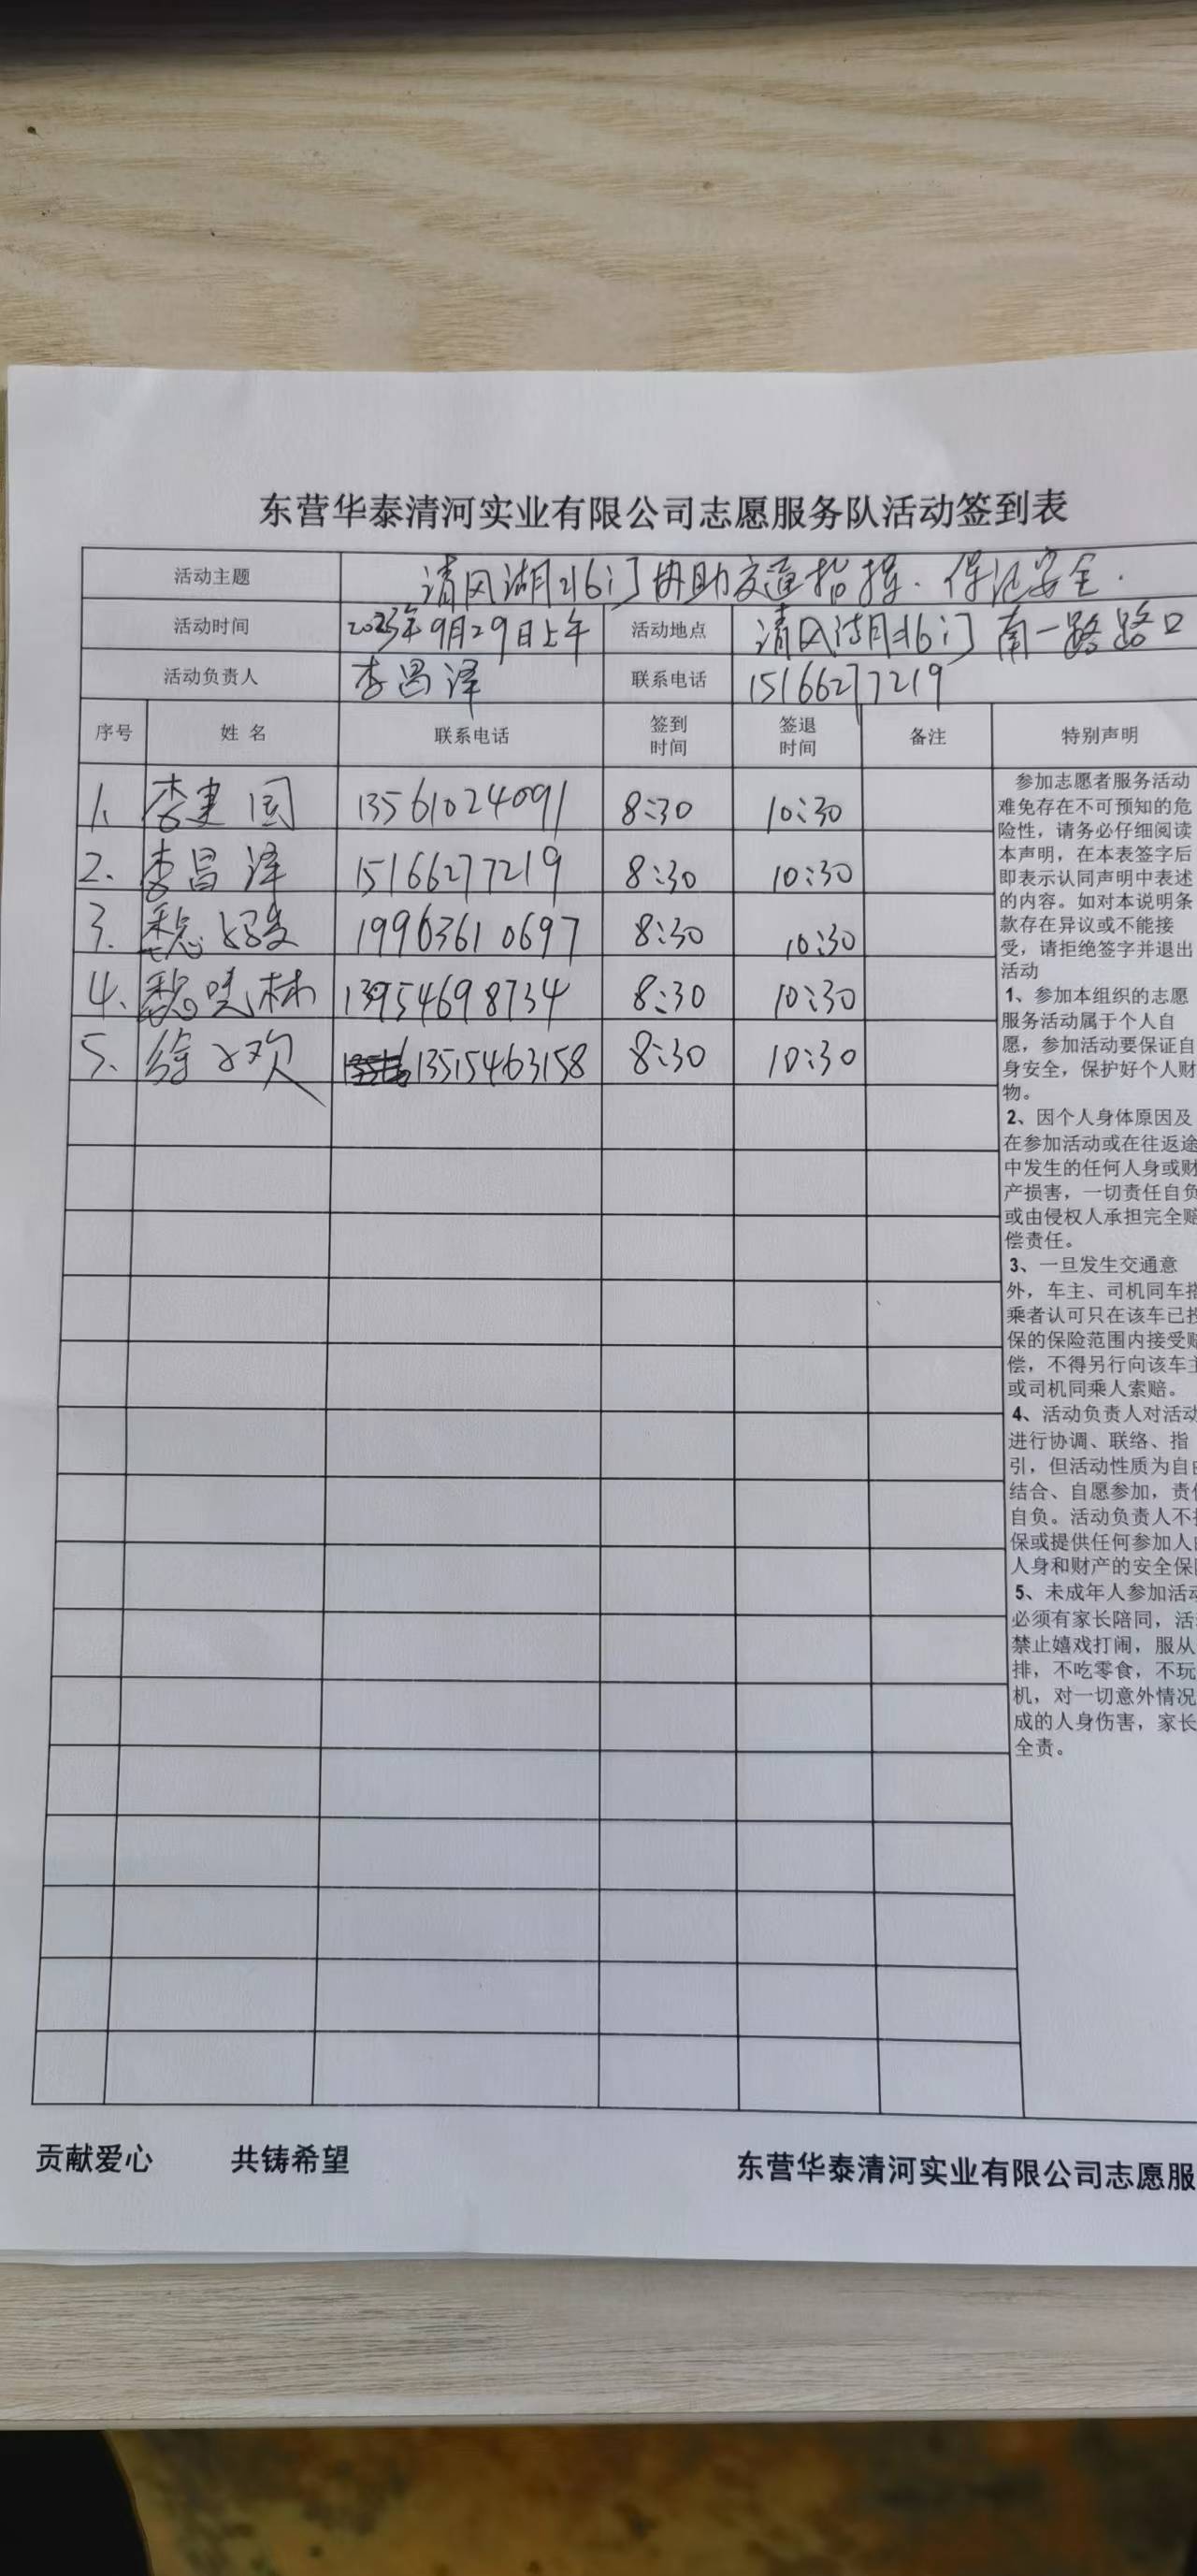 东营华泰清河实业有限公司志愿服务队活动签到表
活动主题 清风湖北门协助交通指挥、保证安全.
活动时间 2023年9月29日上午 活动地点 清风湖北门南一路路口
活动负责人 李昌泽 联系电话 15166277219
序号 姓名 联系电话 签到时间 签退时间 备注 特别声明
1. 李建国 13561024091 8:30 10:30
2. 李昌泽 15166277219 8:30 10:30
3. 魏 19963610697 8:30 10:30
4. 魏 林 13954698734 8:30 10:30
5. 徐 欢 13515463158 8:30 10:30
参加志愿者服务活动
难免存在不可预知的危
险性，请务必仔细阅读
本声明，在本表签字后
即表示认同声明中表述
的内容。如对本说明条
款存在异议或不能接
受，请拒绝签字并退出
活动
1、参加本组织的志愿
服务活动属于个人自
愿，参加活动要保证自
身安全，保护好个人财
物。
2、因个人身体原因及
在参加活动或在往返途
中发生的任何人身或财
产损害，一切责任自负
或由侵权人承担完全赔
偿责任。
3、一旦发生交通意
外，车主、司机同车搭
乘者认可只在该车已投
保的保险范围内接受赔
偿，不得另行向该车主
或司机同乘人索赔。
4、活动负责人对活动
进行协调、联络、指
引，但活动性质为自由
结合、自愿参加，责任
自负。活动负责人不担
保或提供任何参加人的
人身和财产的安全保
5、未成年人参加活动
必须有家长陪同，活
禁止嬉戏打闹，服从
排，不吃零食，不玩
机，对一切意外情况
成的人身伤害，家长
全责。
贡献爱心 共铸希望 东营华泰清河实业有限公司志愿服